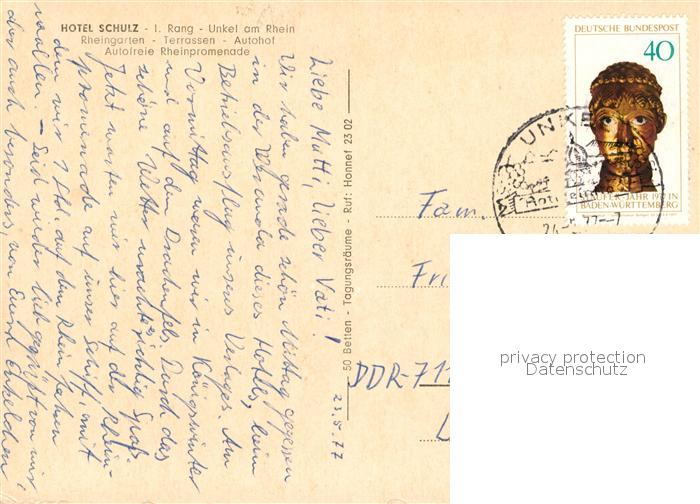 HOTEL SCHULZ - I. Rang - Unkel am Rhein
Rheingarten - Terrassen - Autohof
Autofreie Rheinpromenade
50 Betten - Tagungsräume - Ruf: Honnef 23 02
Liebe Mutti, lieber Vati!
Wir haben gerade schön Mittag gegessen
in der Veranda dieses Hotels, beim
Betriebsausflug unseres Verlages. Am
Vormittag waren wir in Königswinter
und auf dem Drachenfels. Durch das
schöne Wetter macht's richtig Spaß.
Jetzt warten wir hier auf der Rhein-
promenade auf unser Schiff, mit
dem wir 2 Std. auf dem Rhein fahren
wollen. – Seid wieder lieb gegrüßt von mir
aber auch besonders von Euren Enkelchen!
23.8.77
DEUTSCHE BUNDESPOST
40
STAUFER-JAHR 1977 IN
BADEN-WÜRTTEMBERG
UNKEL
Fam.
Fri
DDR-711
L
privacy protection
Datenschutz